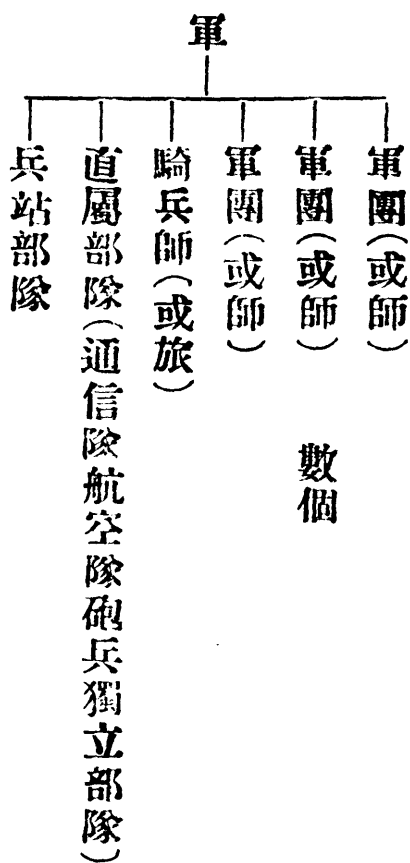 軍
軍團(或師)
軍團(或師)　數個
軍團(或師)
騎兵師(或旅)
直屬部隊(通信隊航空隊砲兵獨立部隊)
兵站部隊